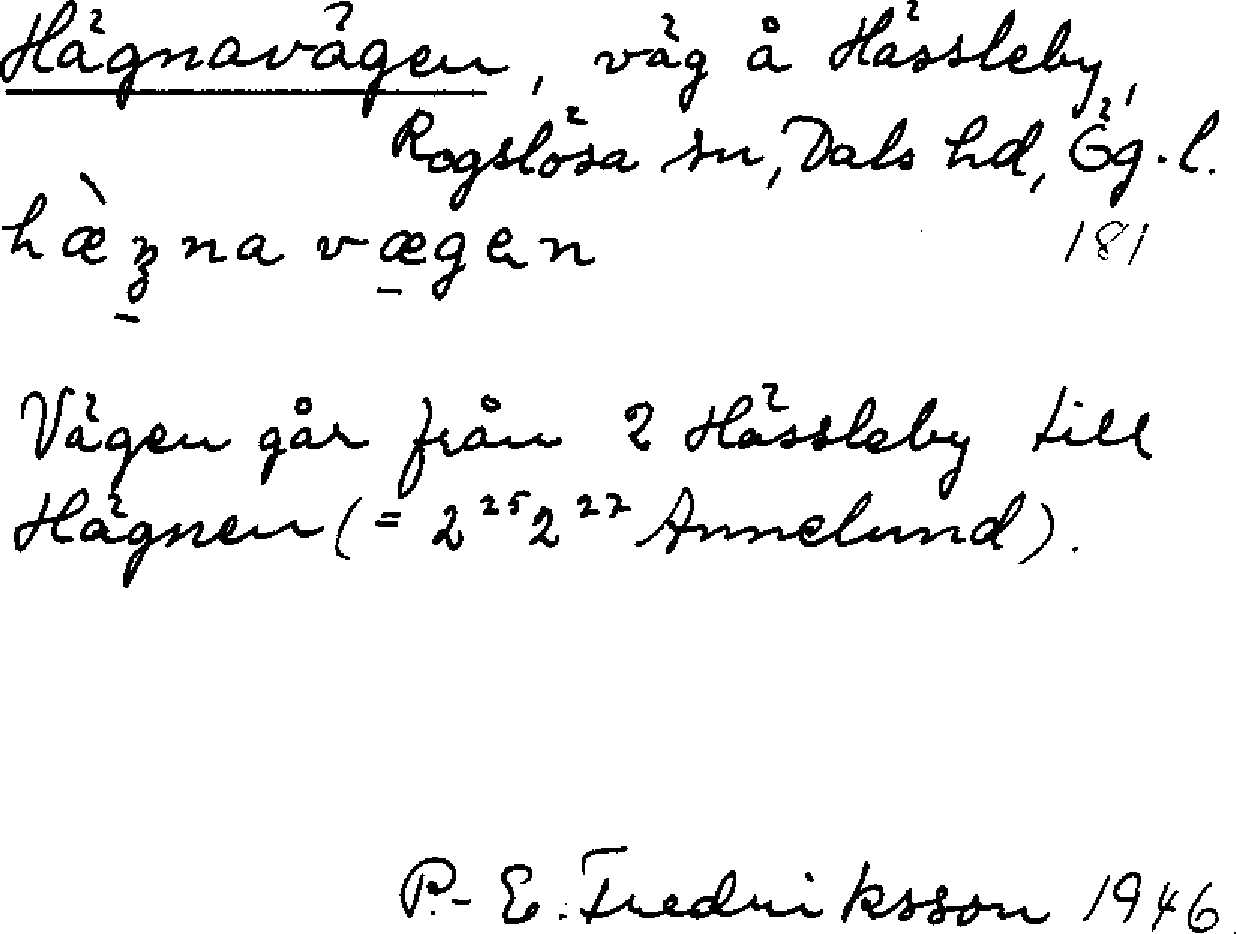 Hägnavägen, väg å Hässleby,
Rogslösa sn, Dals hd, Ög.l.
hæ̀ʒna vægen 181
Vägen går från 2 Hässleby till
Hägnen (= 2²⁵2²⁷ Annelund).
P.-E. Fredriksson 1946.